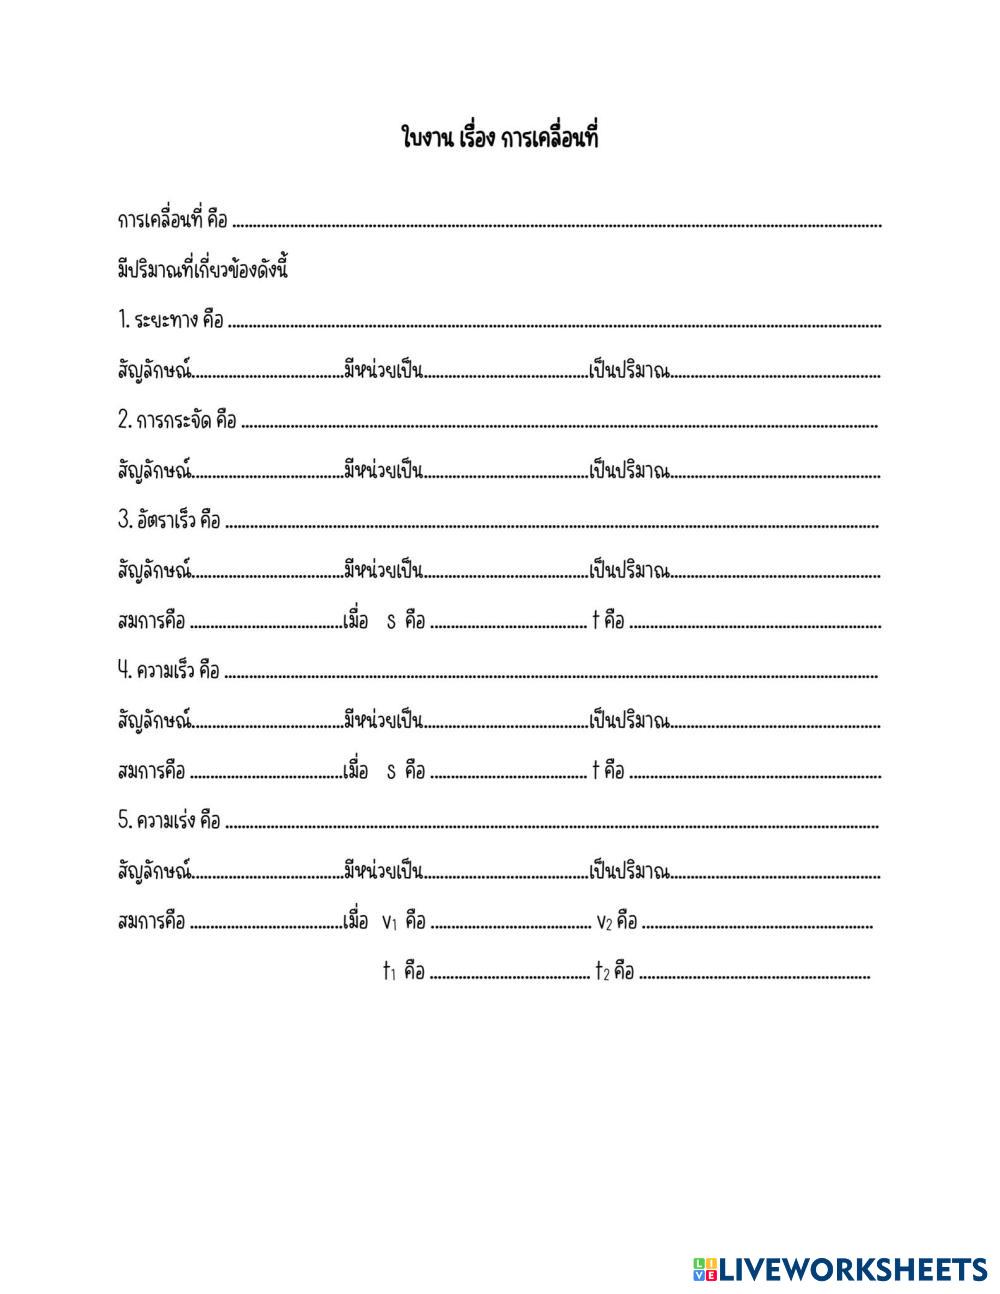 ใบงาน เรื่อง การเคลื่อนที่
การเคลื่อนที่ คือ ........................................
มีปริมาณที่เกี่ยวข้องดังนี้
1. ระยะทาง คือ ........................................
สัญลักษณ์....................มีหน่วยเป็น....................เป็นปริมาณ....................
2. การกระจัด คือ ........................................
สัญลักษณ์....................มีหน่วยเป็น....................เป็นปริมาณ....................
3. อัตราเร็ว คือ ........................................
สัญลักษณ์....................มีหน่วยเป็น....................เป็นปริมาณ....................
สมการคือ ....................เมื่อ s คือ .................... t คือ ....................
4. ความเร็ว คือ ........................................
สัญลักษณ์....................มีหน่วยเป็น....................เป็นปริมาณ....................
สมการคือ ....................เมื่อ s คือ .................... t คือ ....................
5. ความเร่ง คือ ........................................
สัญลักษณ์....................มีหน่วยเป็น....................เป็นปริมาณ....................
สมการคือ ....................เมื่อ v₁ คือ .................... v₂ คือ ....................
t₁ คือ .................... t₂ คือ ....................
LIVEWORKSHEETS